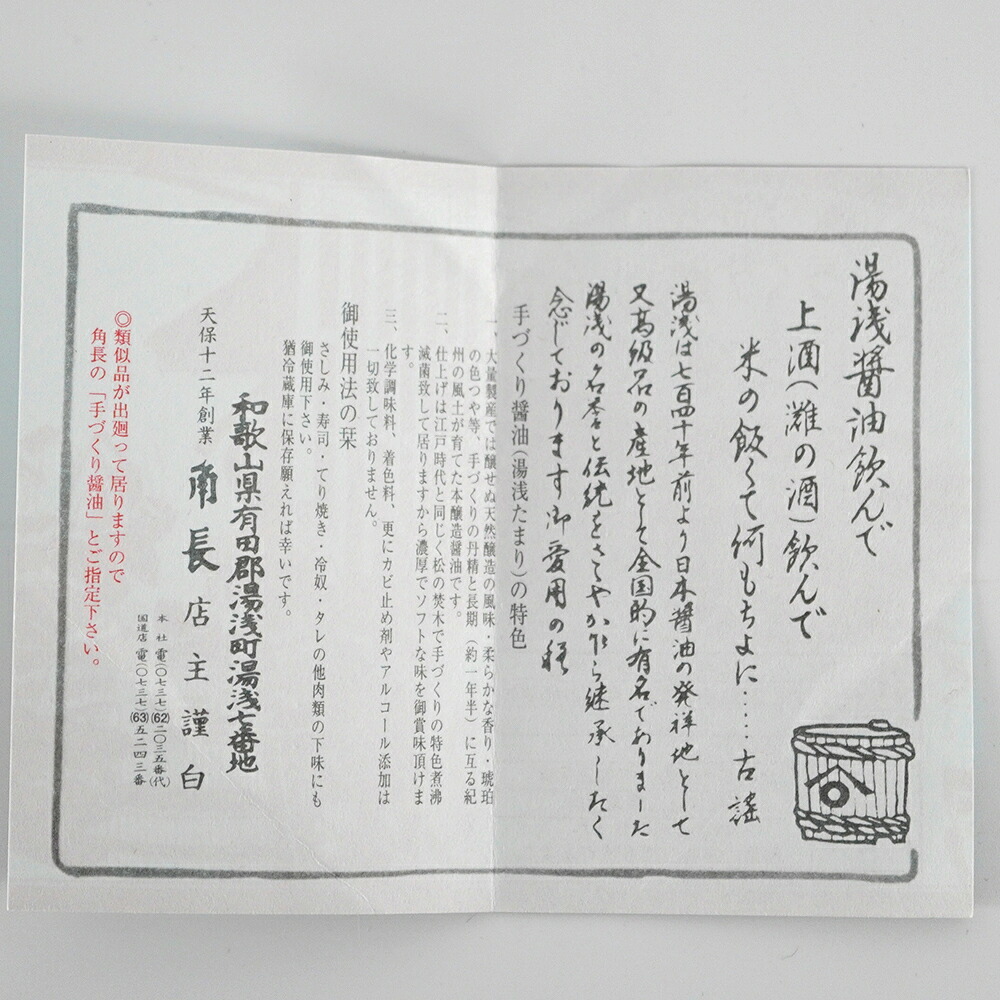 湯浅醤油飲んで
上酒(灘の酒)飲んで
米の飯くて何もちよに……古謡
湯浅は七百四十年前より日本醤油の発祥地として
又高級品の産地として全国的に有名でありました
湯浅の名誉と伝統をささやか乍ら継承したく
念じております御愛用の程
手づくり醤油(湯浅たまり)の特色
一、大量製産では醸せぬ天然醸造の風味・柔らかな香り・琥珀
の色つや等、手づくりの丹精と長期(約一年半)に亙る紀
州の風土が育てた本醸造醤油です。
二、仕上げは江戸時代と同じく松の焚木で手づくりの特色煮沸
滅菌致して居りますから濃厚でソフトな味を御賞味頂けま
す。
三、化学調味料、着色料、更にカビ止め剤やアルコール添加は
一切致しておりません。
御使用法の栞
さしみ・寿司・てり焼き・冷奴・タレの他肉類の下味にも
御使用下さい。
猶冷蔵庫に保存願えれば幸いです。
和歌山県有田郡湯浅町湯浅七番地
天保十二年創業 角長 店主 謹白
本社 電(〇七三七)(62)二〇三五番(代)
国道店 電(〇七三七)(63)五二四三番
◎類似品が出廻って居りますので
角長の「手づくり醤油」とご指定下さい。